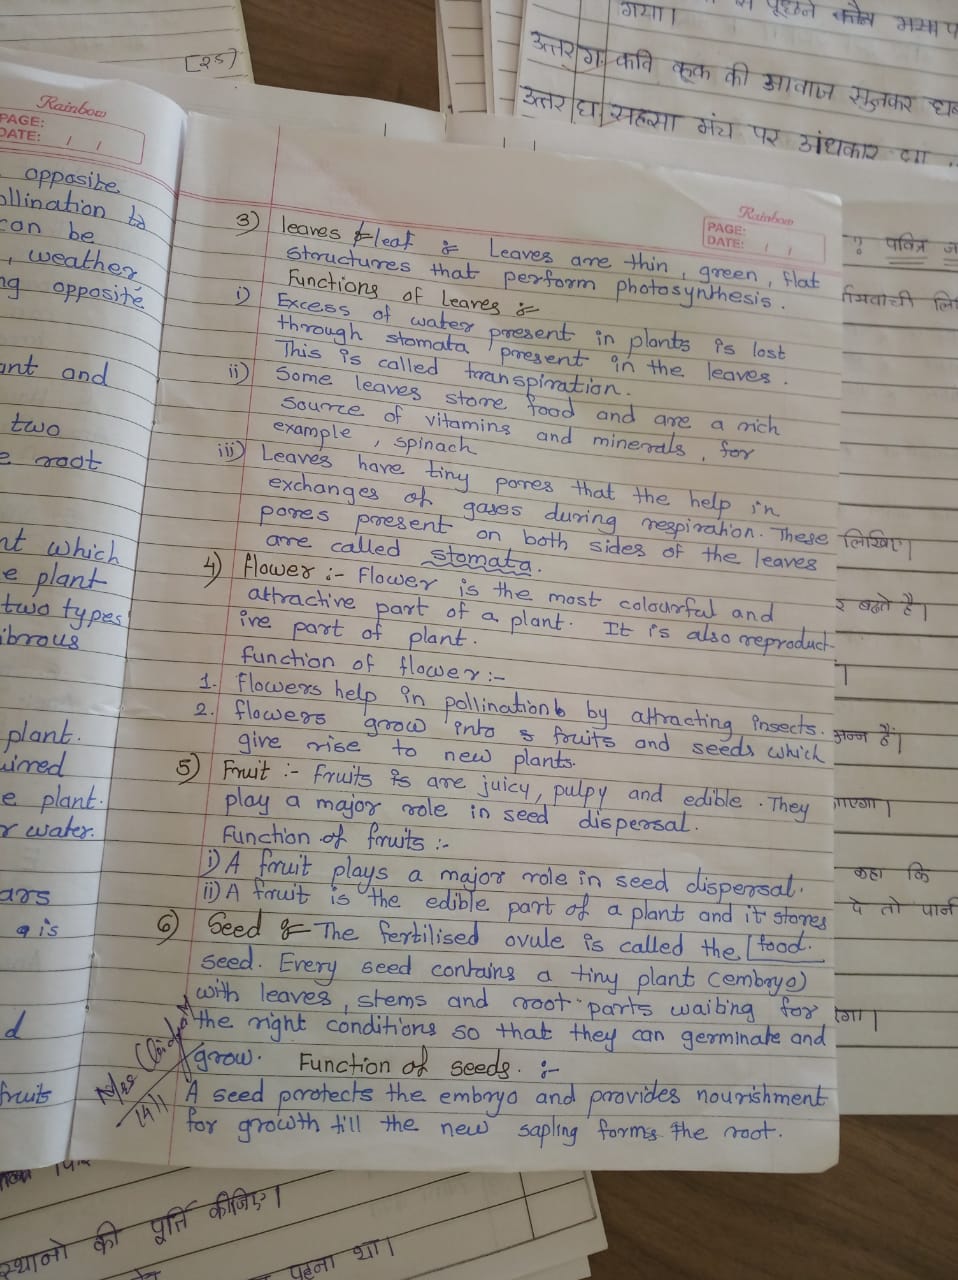 [25]
गया।
उत्तर ग. कवि कूक की आवाज सुनकर
उत्तर घ. सहसा मंच पर अंधकार था
Rainbow
PAGE:
DATE: / /
opposite
ollination to
can be
, weather,
ng opposite
ant and
two
e root
nt which
e plant
two types
ibrous
plant.
uired
e plant.
r water.
ars
a is
d
fruits
Rainbow
PAGE:
DATE: / /
3) leaves leaf :- Leaves are thin, green, flat
structures that perform photosynthesis.
Functions of Leaves :-
i) Excess of water present in plants is lost
through stomata present in the leaves.
This is called transpiration.
ii) Some leaves store food and are a rich
source of vitamins and minerals, for
example, spinach
iii) Leaves have tiny pores that the help in
exchanges of gases during respiration. These
pores present on both sides of the leaves
are called stomata.
4) flower :- Flower is the most colourful and
attractive part of a plant. It is also reproduct-
ive part of plant.
function of flower :-
1. Flowers help in pollination by attracting insects.
2. flowers grow into fruits and seeds which
give rise to new plants.
5) Fruit :- Fruits are juicy, pulpy and edible. They
play a major role in seed dispersal.
Function of fruits :-
i) A fruit plays a major role in seed dispersal.
ii) A fruit is the edible part of a plant and it stores
food.
6) Seed :- The fertilised ovule is called the
seed. Every seed contains a tiny plant (embryo)
with leaves, stems and root parts waiting for
the right conditions so that they can germinate and
grow. Function of seeds. :-
A seed protects the embryo and provides nourishment
for growth till the new sapling forms the root.
? पवित्र
लिखिए।
बढ़ते है।
।
कहा कि
दे तो पानी
स्थानो की पूर्ति कीजिए।
पहना था।